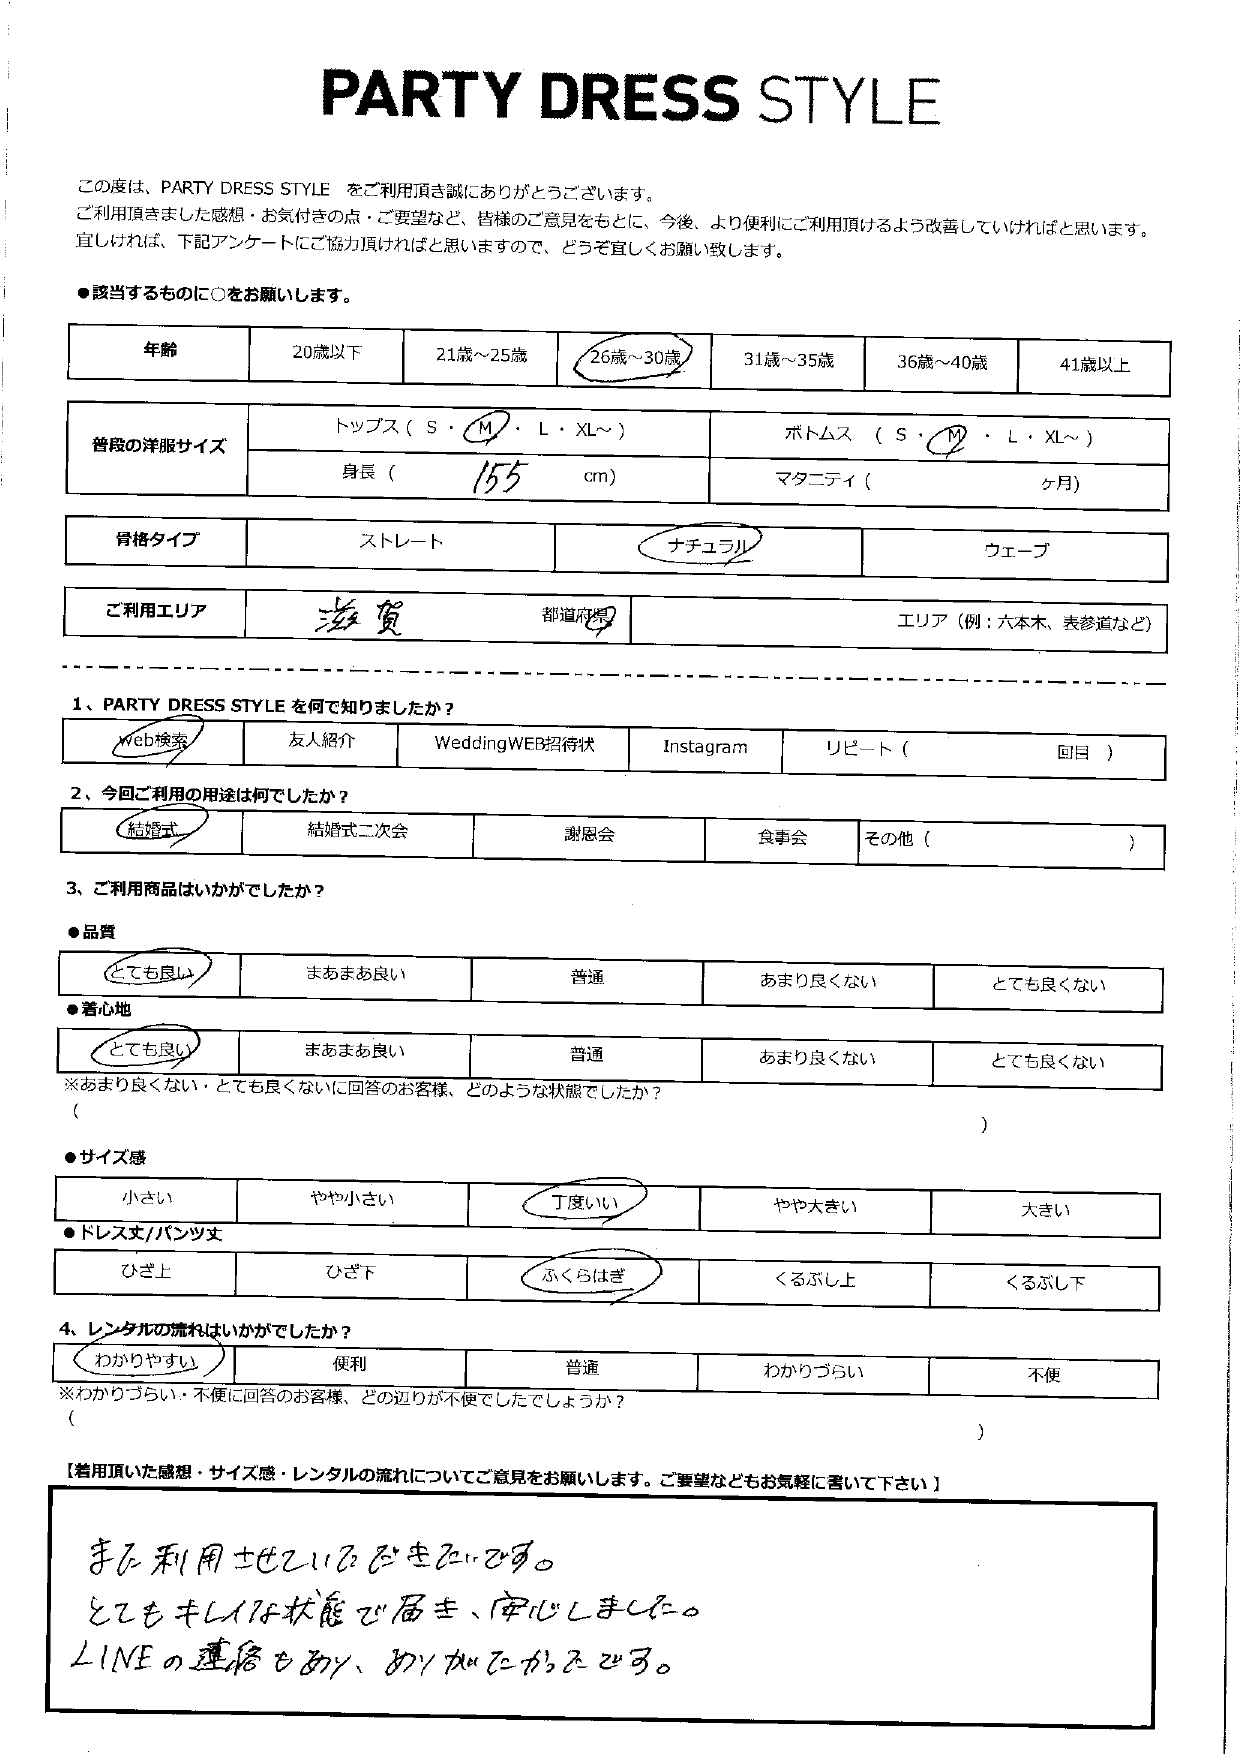 PARTY DRESS STYLE
この度は、PARTY DRESS STYLE をご利用頂き誠にありがとうございます。
ご利用頂きました感想・お気付きの点・ご要望など、皆様のご意見をもとに、今後、より便利にご利用頂けるよう改善していければと思います。
宜しければ、下記アンケートにご協力頂ければと思いますので、どうぞ宜しくお願い致します。
●該当するものに○をお願いします。
年齢 20歳以下 21歳～25歳 26歳～30歳 31歳～35歳 36歳～40歳 41歳以上
普段の洋服サイズ トップス ( S ・ M ・ L ・ XL～ ) ボトムス ( S ・ M ・ L ・ XL～ )
身長 ( 155 cm) マタニティ ( ヶ月)
骨格タイプ ストレート ナチュラル ウェーブ
ご利用エリア 滋賀 都道府県 エリア（例：六本木、表参道など）
1、PARTY DRESS STYLE を何で知りましたか？
Web検索 友人紹介 WeddingWEB招待状 Instagram リピート ( 回目 )
2、今回ご利用の用途は何でしたか？
結婚式 結婚式二次会 謝恩会 食事会 その他 ( )
3、ご利用商品はいかがでしたか？
●品質
とても良い まあまあ良い 普通 あまり良くない とても良くない
●着心地
とても良い まあまあ良い 普通 あまり良くない とても良くない
※あまり良くない・とても良くないに回答のお客様、どのような状態でしたか？
( )
●サイズ感
小さい やや小さい 丁度いい やや大きい 大きい
●ドレス丈/パンツ丈
ひざ上 ひざ下 ふくらはぎ くるぶし上 くるぶし下
4、レンタルの流れはいかがでしたか？
わかりやすい 便利 普通 わかりづらい 不便
※わかりづらい・不便に回答のお客様、どの辺りが不便でしたでしょうか？
( )
【着用頂いた感想・サイズ感・レンタルの流れについてご意見をお願いします。ご要望などもお気軽に書いて下さい】
また利用させていただきたいです。
とてもキレイな状態で届き、安心しました。
LINEの連絡もあり、ありがたかったです。